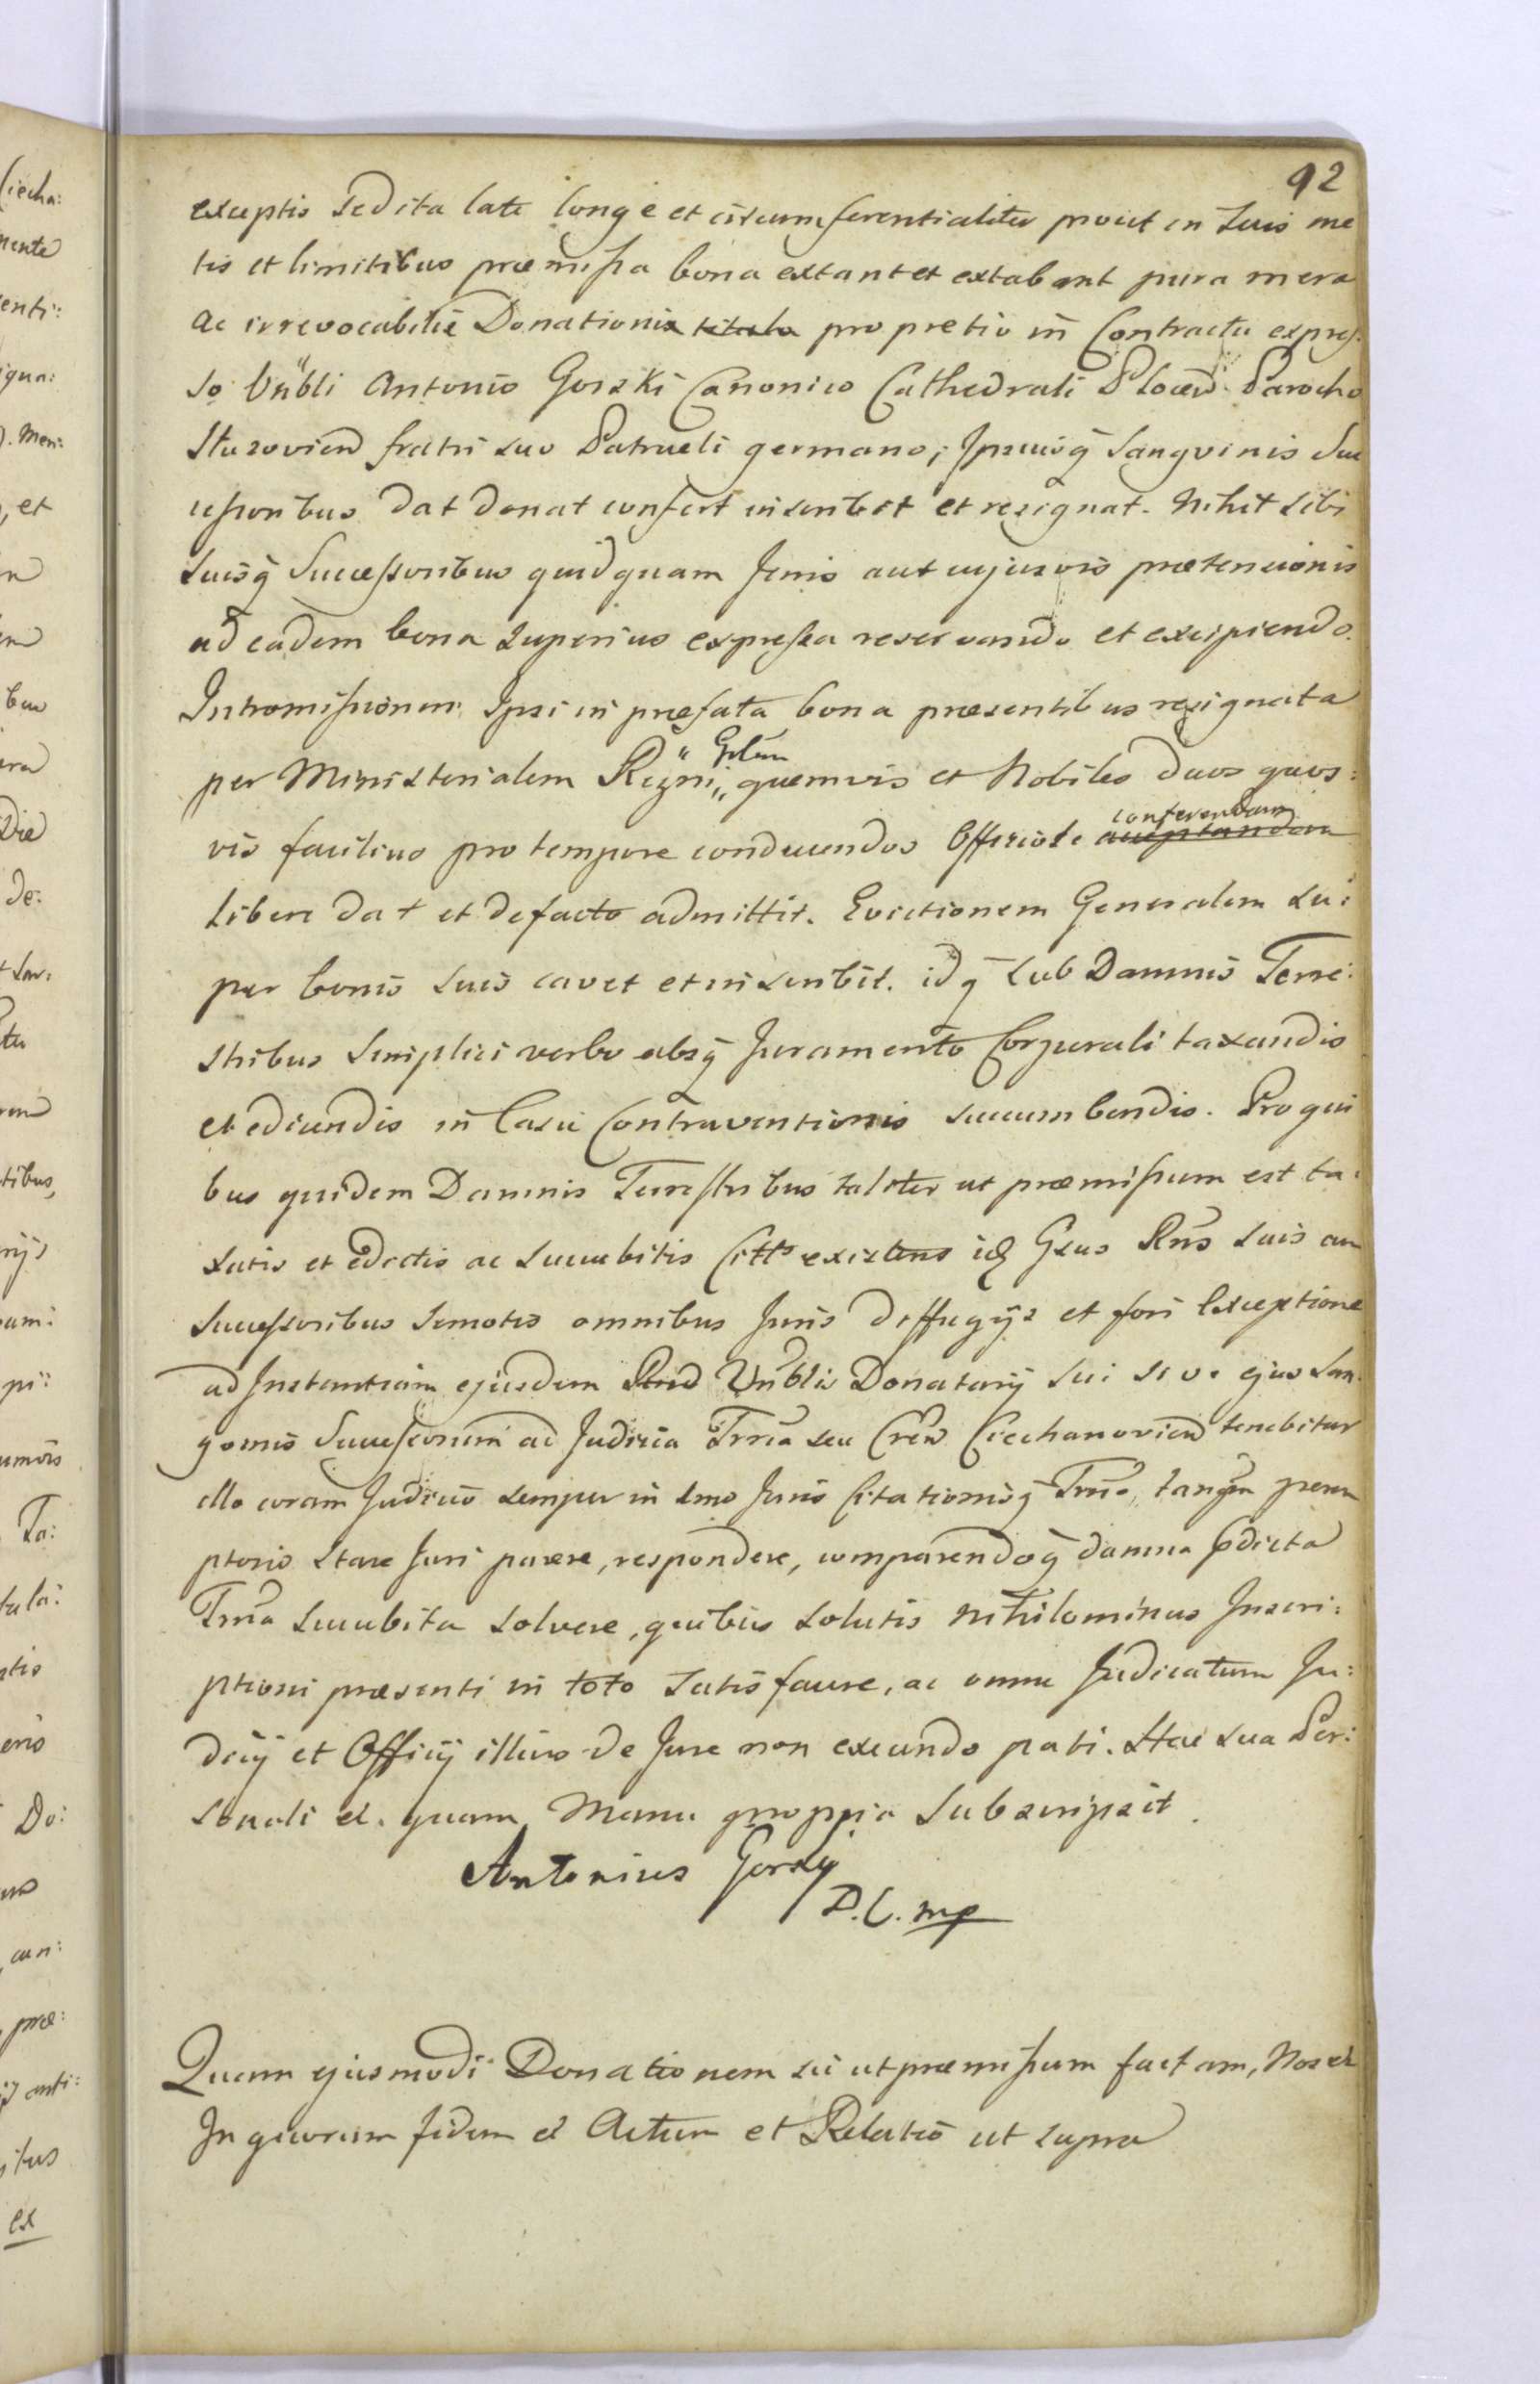 92
exceptis sed ita late longe et circumferentialiter prout in suis me
tis et limitibus præmissa bona extant et extabant pura mera
ac irrevocabilis Donationis titulo pro pretio in Contractu expres:
so Vnbli Antonio Gorski Canonico Cathedrali Plocen Parocho
Sturovien fratri suo Patrueli germano; Ipsiusq̃ Sangvinis Suc
cessoribus dat donat confert inscribit et resignat. Nihil sibi
suisq̃ Successoribus quidquam Juris aut cujusvis prætensionis
ad eadem bona superius expressa reservando et excipiendo.
Intromissionem Ipsi in præfata bona præsentibus resignata
per Ministerialem Regni Gñlem quemvis et Nobiles duos quos:
vis facilius pro tempore conducendos Officiose acceptandam conferendam
libere dat et de facto admittit. Evictionem Generalem su:
per bonis suis cavet et inscribit. idq̃ sub Damnis Terre:
stribus simplici verbo absq̃ Juramento Corporali taxandis
et edicendis in Casu Contraventionis succumbendis. Pro qui
bus quidem Damnis Terrestribus taliter ut præmissum est ta:
xatis et edictis ac succubitis Citts existens idē Gsus Rns suis cum
Successoribus semotis omnibus Juris diffugijs et fori Exceptione
ad Instantiam ejusdem Rnd Vnblis Donatarij sui sive ejus San:
gvinis Successorum ad Judicia Trria seu Cren Ciechanovien tenebitur
illo coram Judicio semper in smo Juris Citationisq̃ Trrio, tanqm perem
ptorio stare Juri parere, respondere, comparendoq̃ damna pdicta
Trria succubita solvere, quibus solutis nihilominus Inscri:
ptioni præsenti in toto satisfacere, ac omne Judicatum Ju:
dicij et Officij illius de Jure non exeundo pati. Hac sua Per:
sonali et. quam Manu proppia subscripsit.
Antonius Gorsky
P.C. mp
Quam ejusmodi Donationem sic ut præmissum factam, Nos et
In quorum fidem et Actum et Relatio ut supra